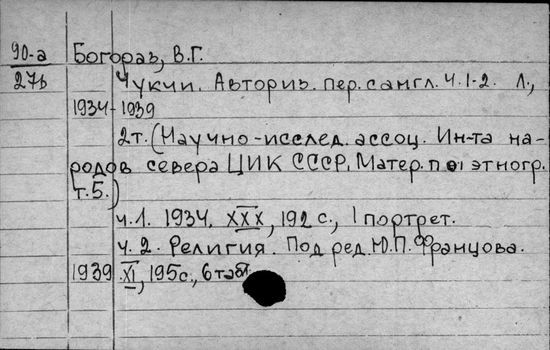 90-а Богораз, В.Г.
27ь Чукчи. Авториз. пер. с англ. Ч. 1-2. Л.,
1934-1939
2т. (Научно-исслед. ассоц. Ин-та на-
родов севера ЦИК СССР, Матер. по этногр.
т. 5.)
ч. 1. 1934. XXX, 192 с., 1 портрет.
ч. 2. Религия. Под ред. Ю.П. Францова.
1939. XI, 195 с., 6 табл.